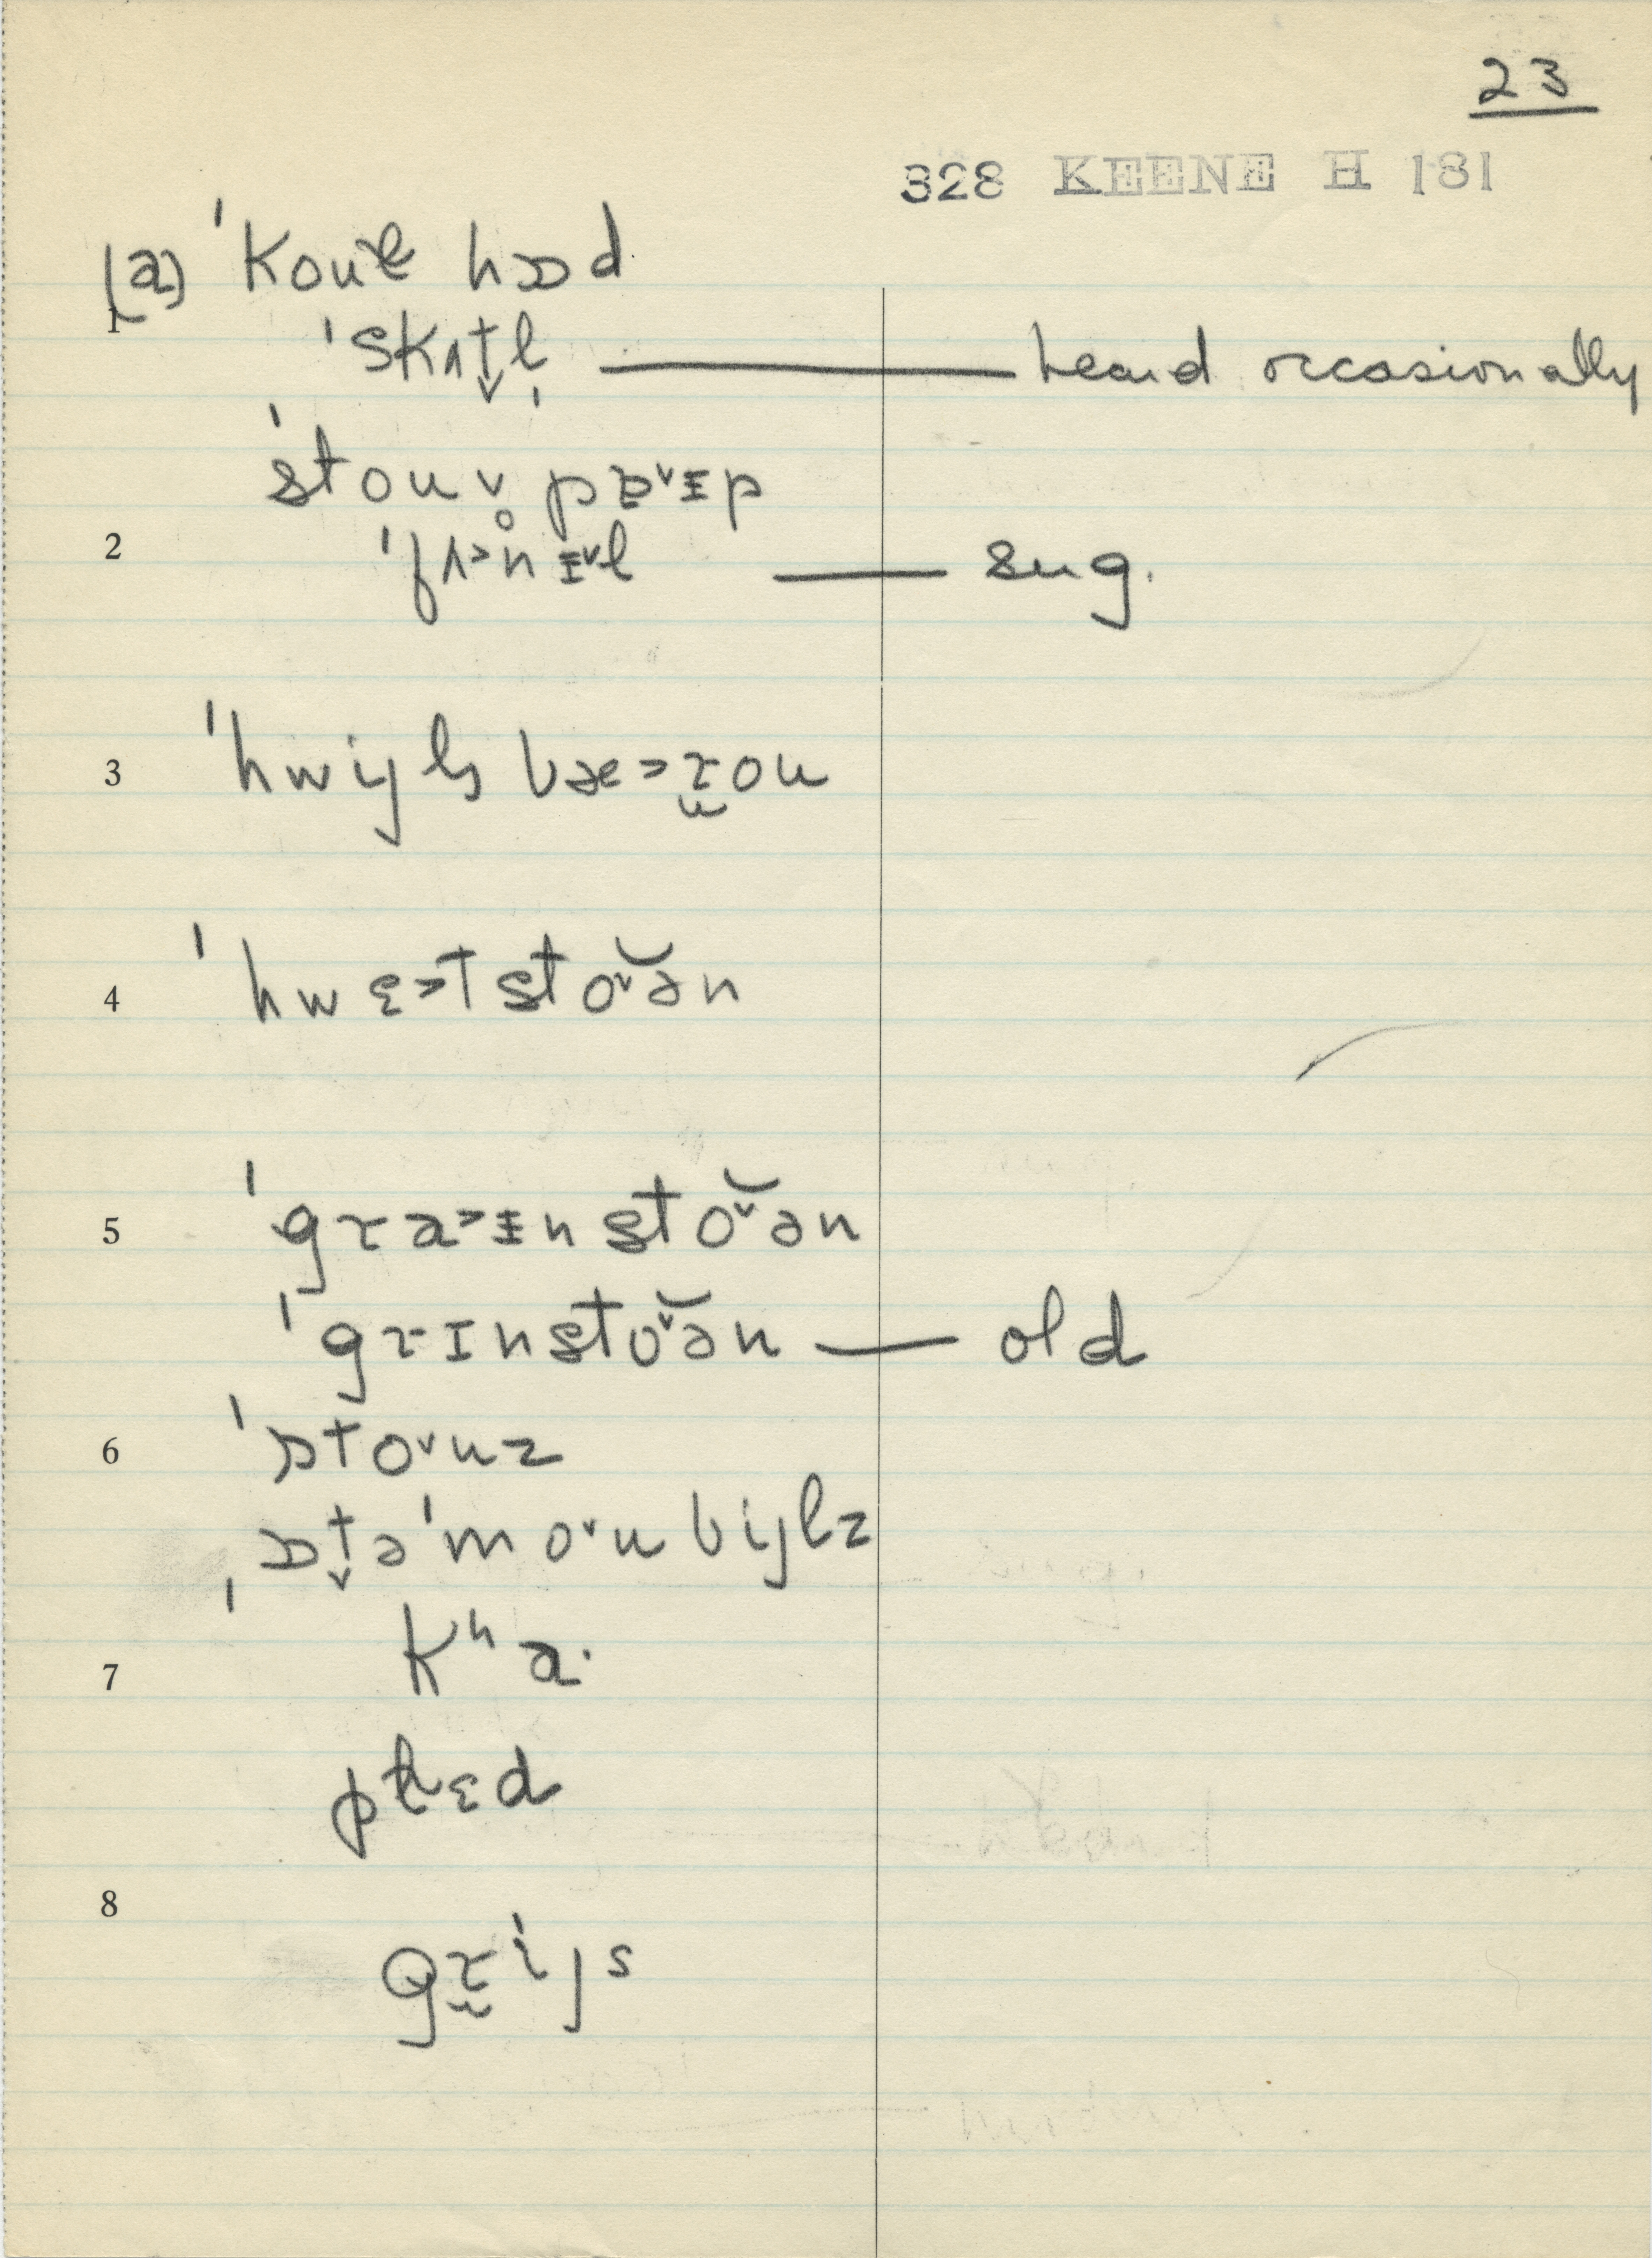 23
328 KEENE H 181
(a) ˈkouɫ hɒd
1 ˈskʌt̬l̩ — heard occasionally
ˈstouv̥ pɐ˅ɪp
2 ˈfʌ˃nɪ˅l — sug.
3 ˈhwijlbæ˃rou
4 ˈhwɛ˃tstoˇən
5 ˈgra˃ɪnstoˇən
ˈgrɪnstoˇən — old
6 ˈɒto˅uz
ˌɒt̬əˈmo˅ubijlz
7 kʰa·
pɫɛd
8 grijs